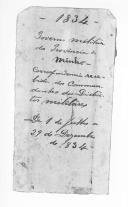 - 1834 -
Governo militar
da Provincia do
Minho -
Correspondencia rece-
bida dos Comman-
dantes dos Distri-
tos militares
De 1 de Julho a
29 de Dezembro
de 1834